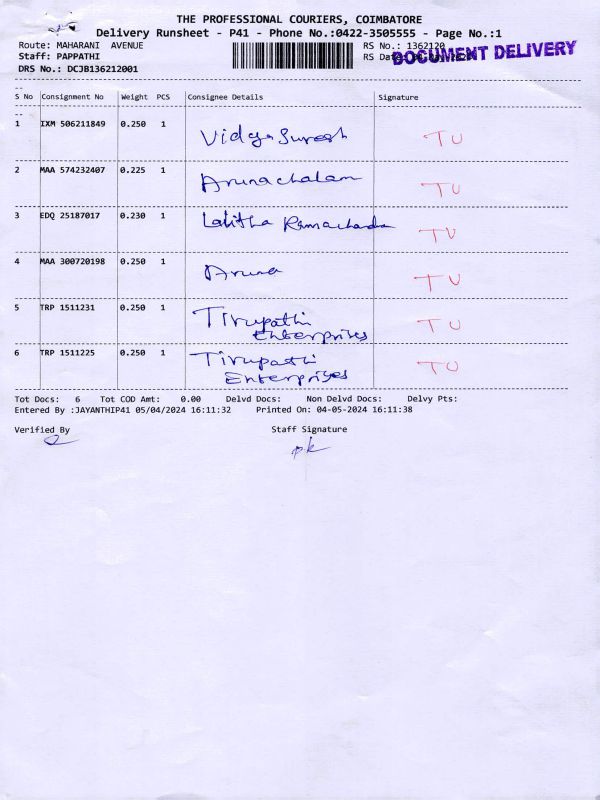 THE PROFESSIONAL COURIERS, COIMBATORE
Delivery Runsheet - P41 - Phone No.:0422-3505555 - Page No.:1
Route: MAHARANI AVENUE
RS No.: 1362120
Staff: PAPPATHI
RS Date:
DOCUMENT DELIVERY
DRS No.: DCJB136212001
S No Consignment No Weight PCS Consignee Details Signature
1 IXM 506211849 0.250 1 Vidya Suresh TU
2 MAA 574232407 0.225 1 Arunachalam TU
3 EDQ 25187017 0.230 1 Lalitha Ramachandra TU
4 MAA 300720198 0.250 1 Aruna TU
5 TRP 1511231 0.250 1 Tirupathi TU
Enterprises
6 TRP 1511225 0.250 1 Tirupathi TU
Enterprises
Tot Docs: 6 Tot COD Amt: 0.00 Delvd Docs: Non Delvd Docs: Delvy Pts:
Entered By :JAYANTHIP41 05/04/2024 16:11:32 Printed On: 04-05-2024 16:11:38
Verified By Staff Signature